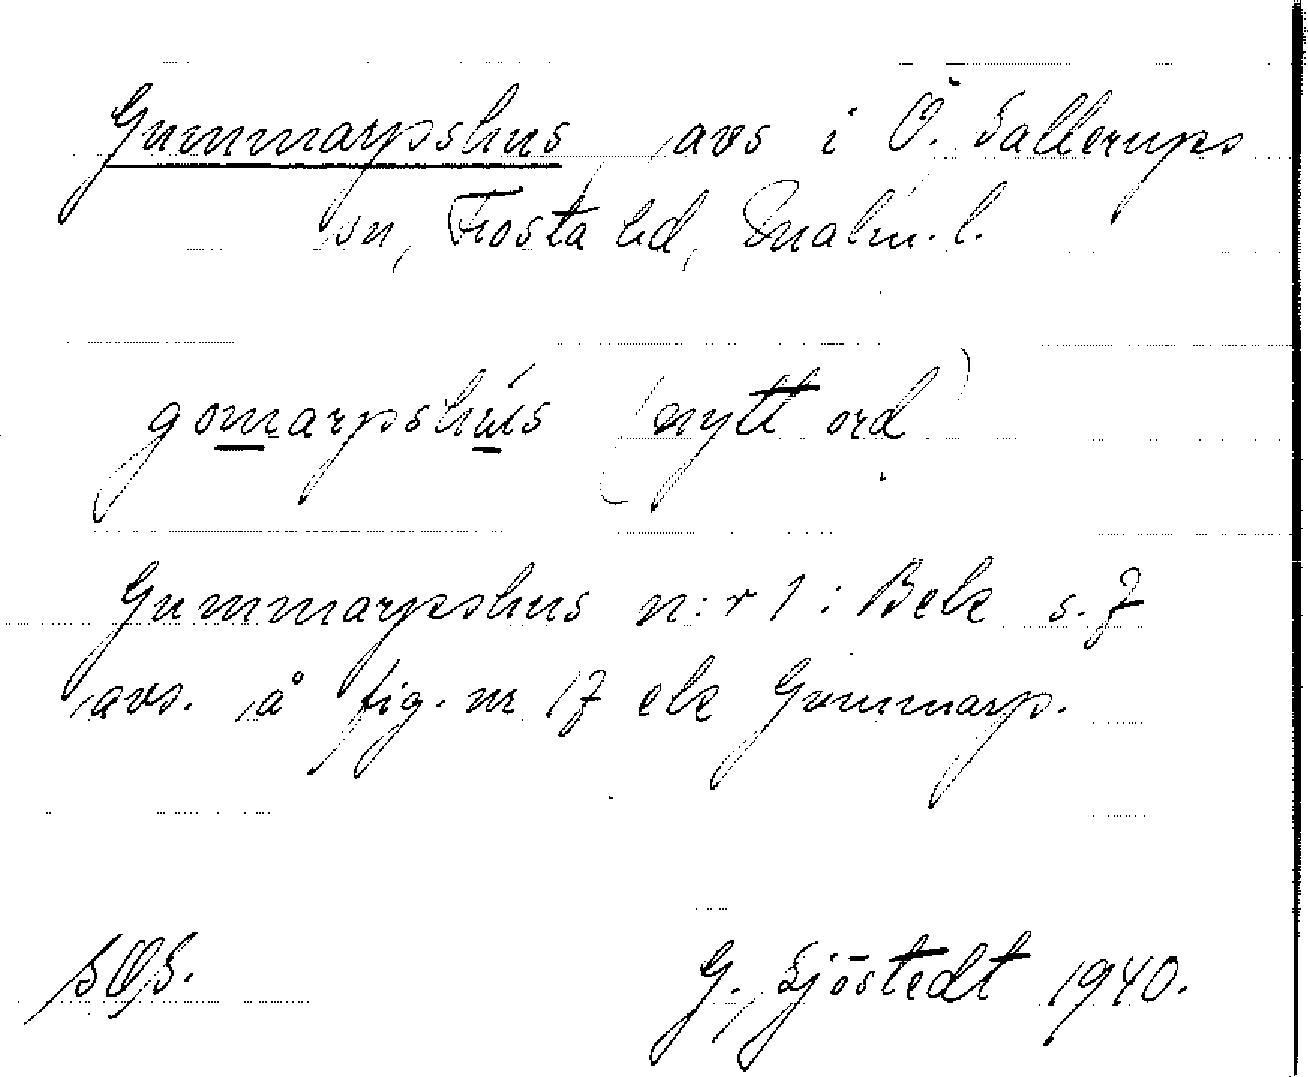 Gummarpshus, avs i Ö. Sallerups
sn, Frosta hd, Malm. l.
gomarpshús (nytt ord)
Gummarpshus n:r 1: Bek s. 7
avs. å fig. nr 17 ek Gummarp.
G. Sjöstedt 1940.